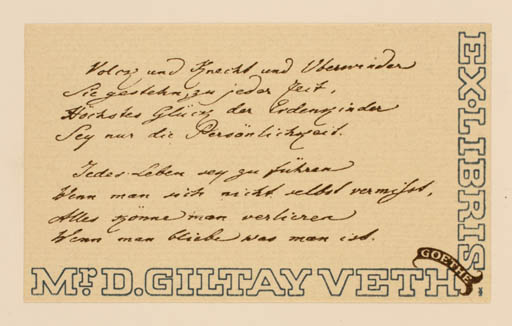 Volck und Knecht und Uberwinder
Sie gestehn, zu jeder Zeit,
Höchstes Glück der Erdenkinder
Sey nur die Persönlichkeit.
Jedes Leben sey zu führen
Wenn man sich nicht selbst vermisst,
Alles könne man verlieren
Wenn man bliebe was man ist.
GOETHE
EX·LIBRIS
Mr. D. GILTAY VETH